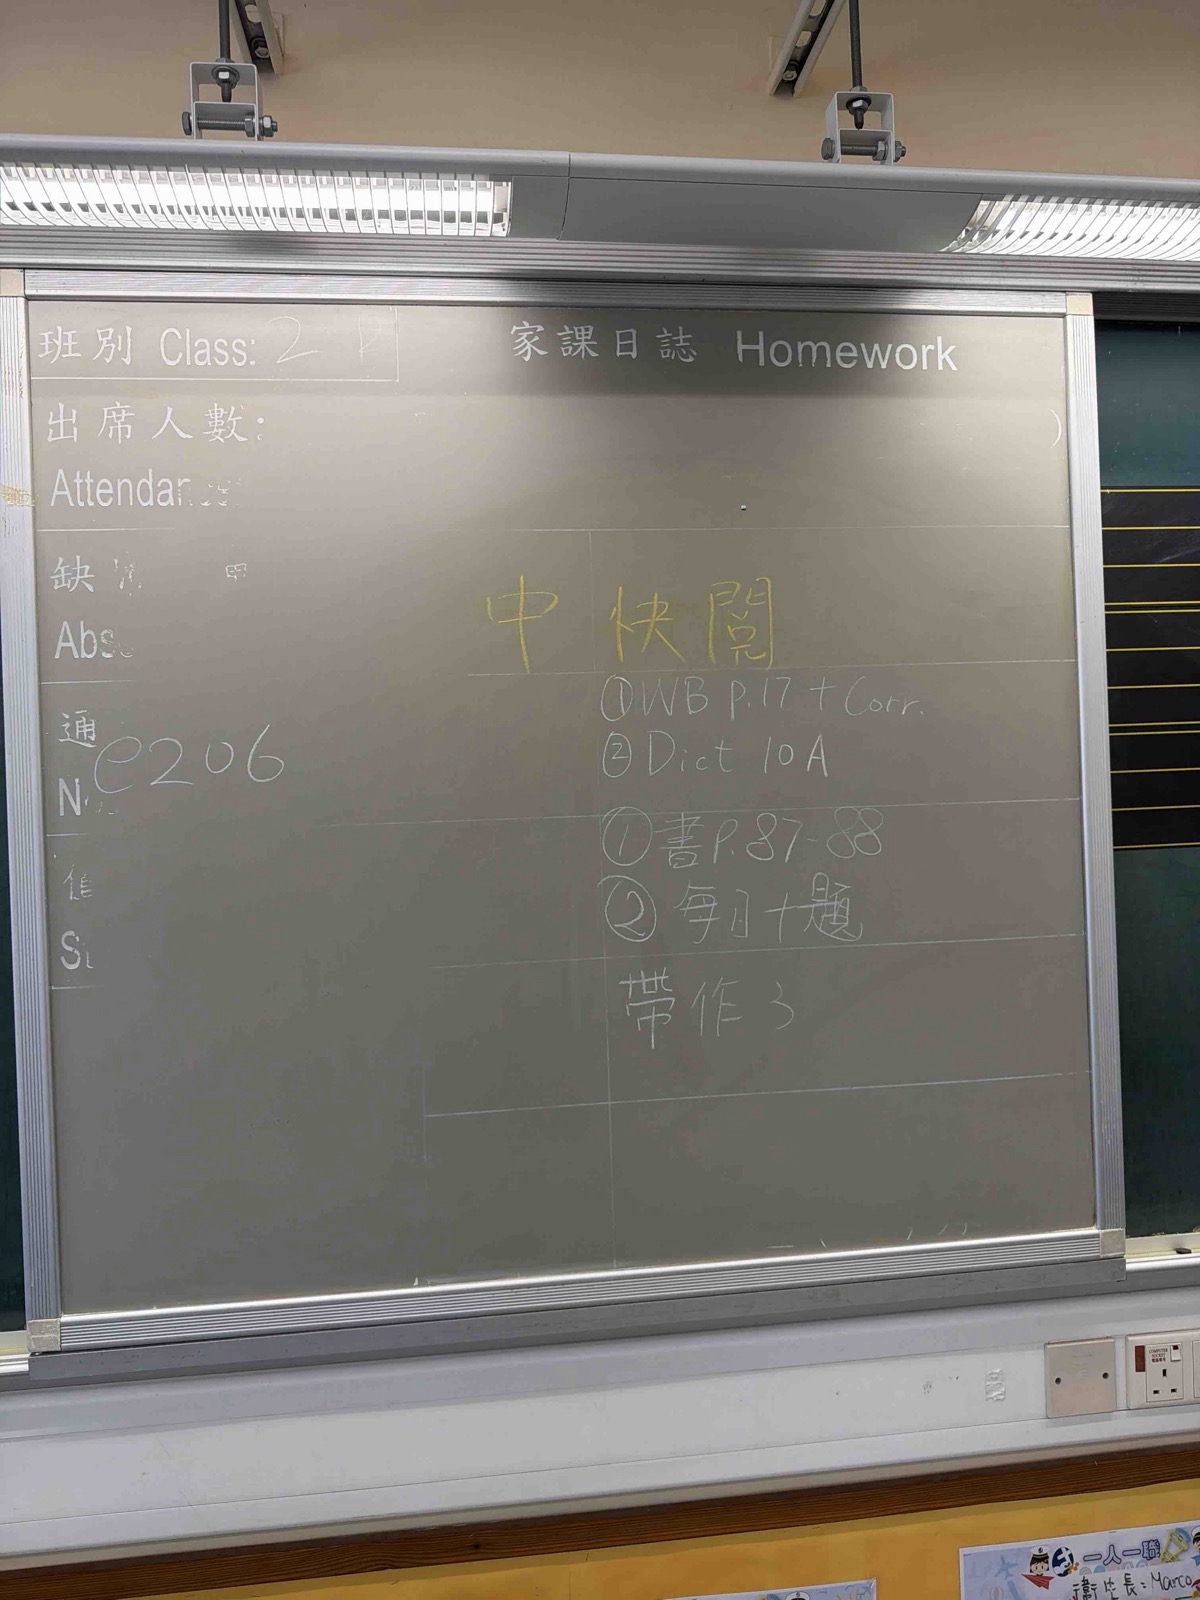 班別 Class: 2
家課日誌 Homework
出席人數:
Attendan
缺
Abs
中 快閱
通
e206
N
① WB p.17 + Corr.
② Dict 10A
① 書P.87-88
② 每日十題
信
S
帶作3
COMPUTER SOCKET
一人一職
衞生長:Marco